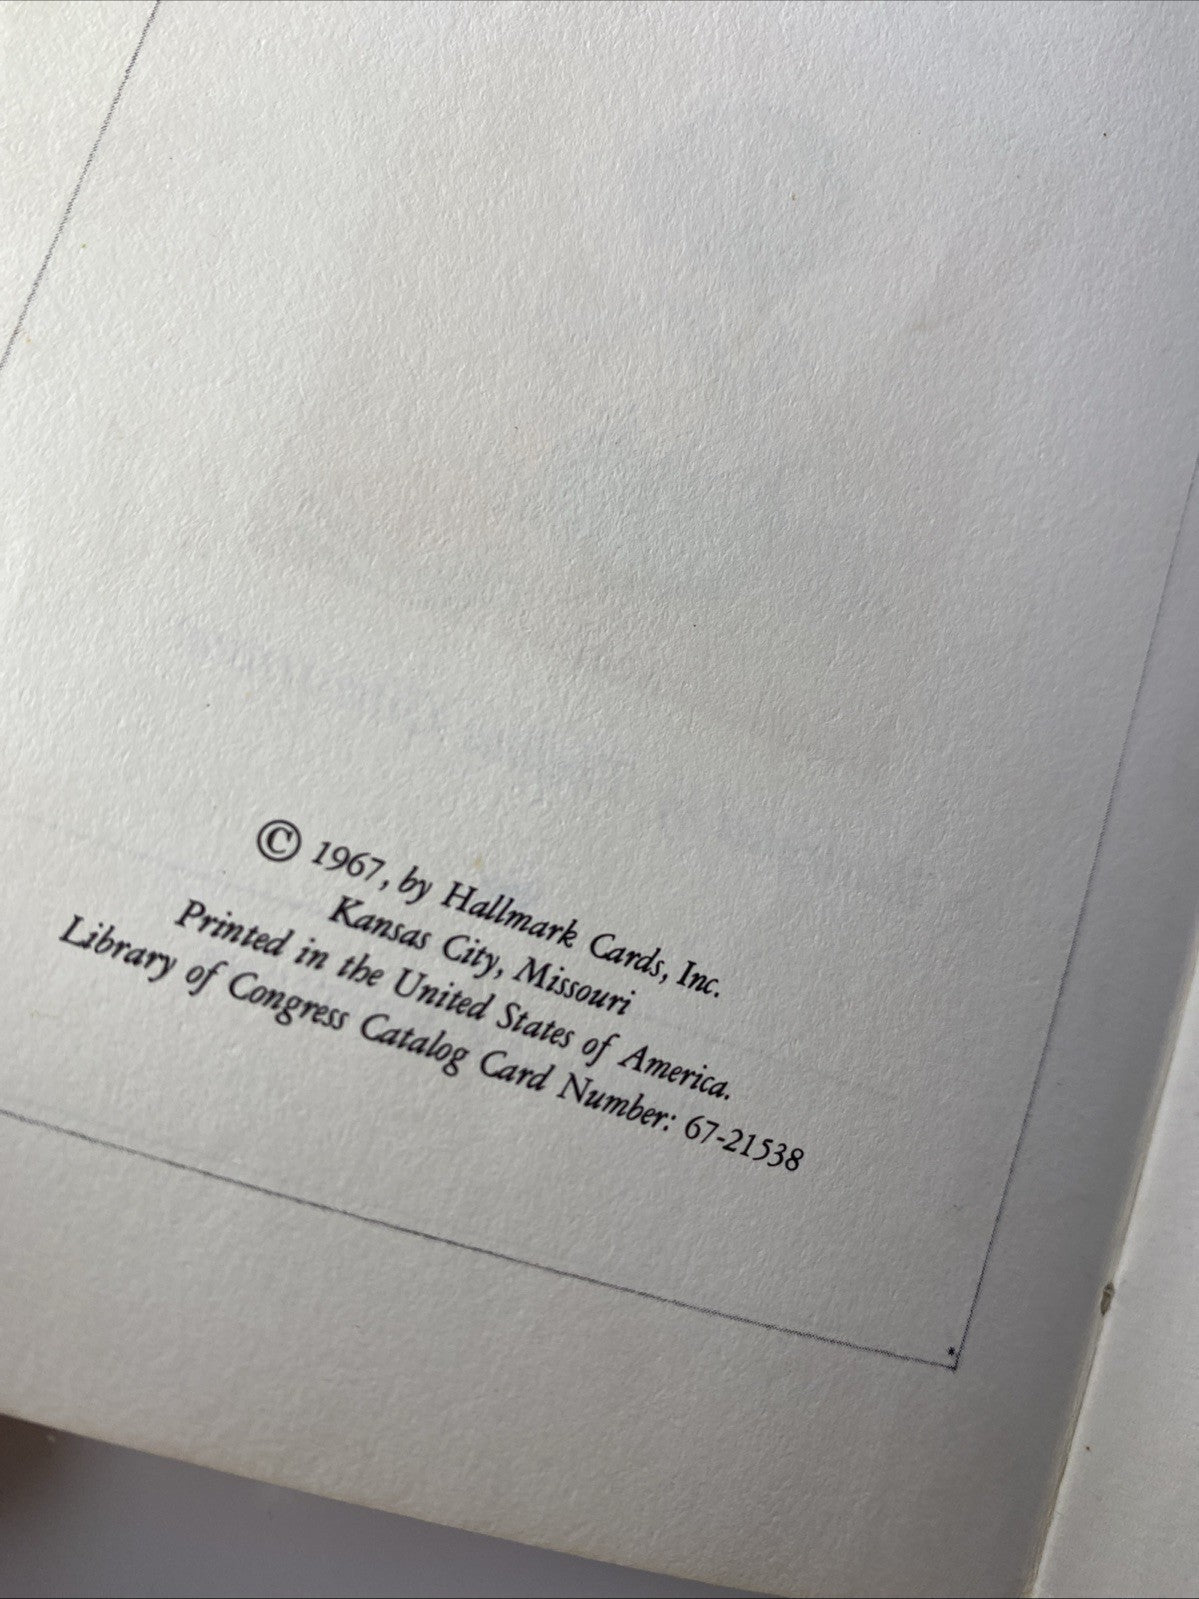 © 1967, by Hallmark Cards, Inc.
Kansas City, Missouri
Printed in the United States of America.
Library of Congress Catalog Card Number: 67-21538